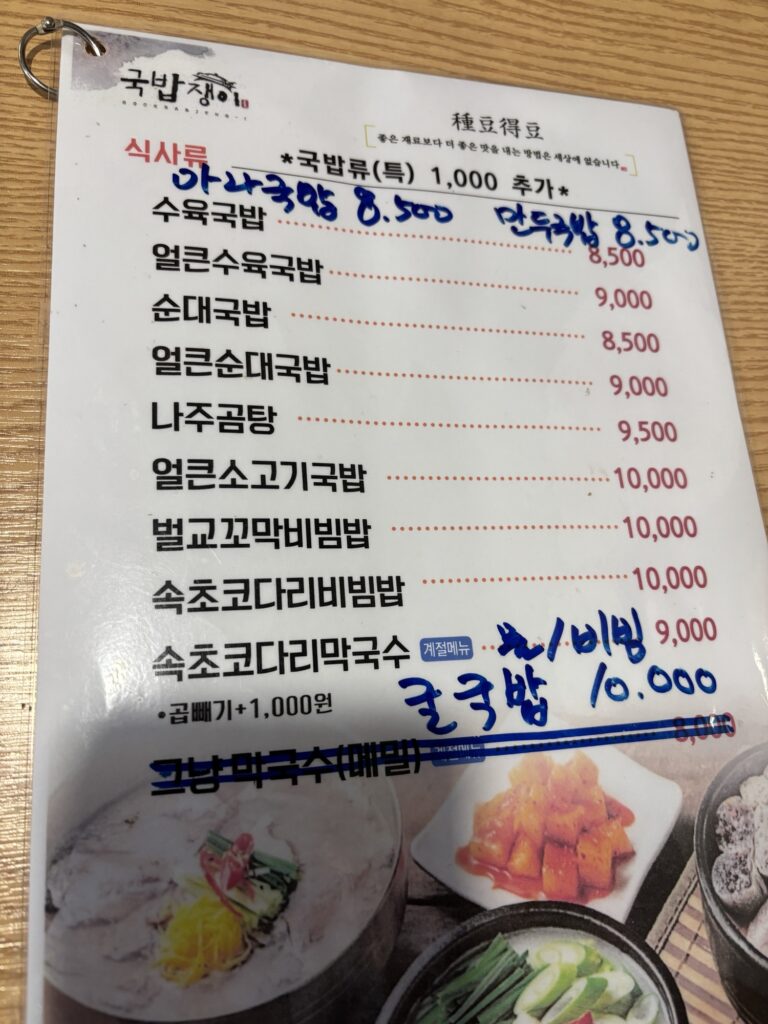 국밥쟁이
GOOKBABJENG-I
種豆得豆
좋은 재료보다 더 좋은 맛을 내는 방법은 세상에 없습니다.
식사류 *국밥류(특) 1,000 추가*
아라국밥 8.500 만두국밥 8.500
수육국밥 8,500
얼큰수육국밥 9,000
순대국밥 8,500
얼큰순대국밥 9,000
나주곰탕 9,500
얼큰소고기국밥 10,000
벌교꼬막비빔밥 10,000
속초코다리비빔밥 10,000
속초코다리막국수 계절메뉴 물/비빔 9,000
•곱빼기+1,000원 굴국밥 10.000
그냥 막국수(메밀) 계절메뉴 8,000